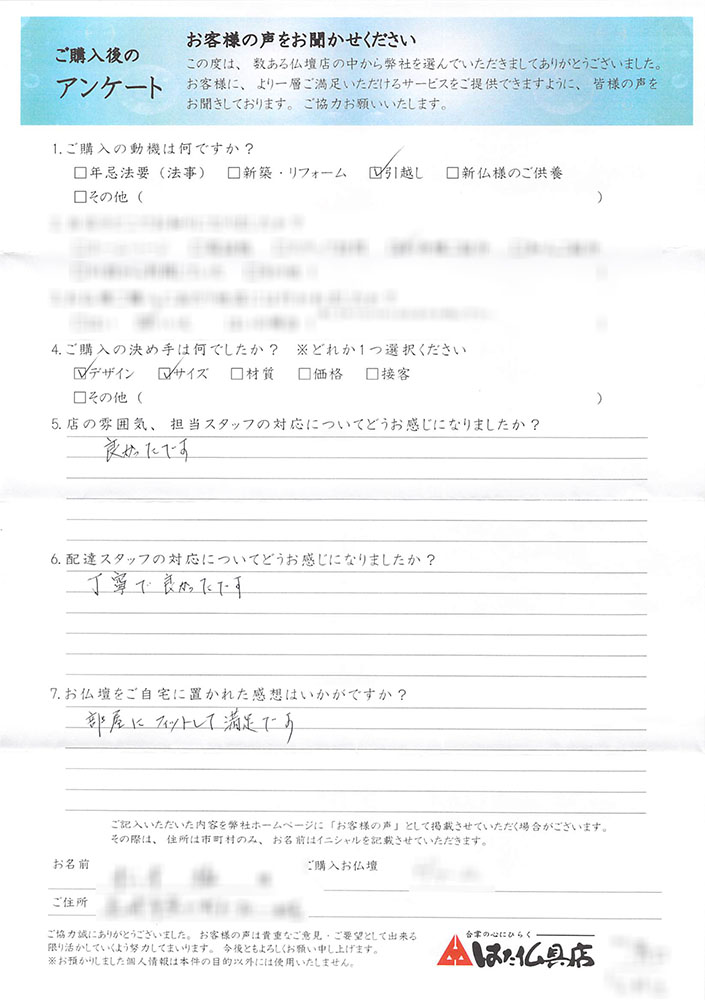 ご購入後の
アンケート
お客様の声をお聞かせください
この度は、数ある仏壇店の中から弊社を選んでいただきましてありがとうございました。
お客様に、より一層ご満足いただけるサービスをご提供できますように、皆様の声を
お聞きしております。ご協力お願いいたします。
1.ご購入の動機は何ですか？
□年忌法要（法事） □新築・リフォーム ☑引越し □新仏様のご供養
□その他（ ）
4.ご購入の決め手は何でしたか？ ※どれか1つ選択ください
☑デザイン ☑サイズ □材質 □価格 □接客
□その他（ ）
5.店の雰囲気、担当スタッフの対応についてどうお感じになりましたか？
良かったです
6.配達スタッフの対応についてどうお感じになりましたか？
丁寧で良かったです
7.お仏壇をご自宅に置かれた感想はいかがですか？
部屋にフィットして満足です
ご記入いただいた内容を弊社ホームページに「お客様の声」として掲載させていただく場合がございます。
その際は、住所は市町村のみ、お名前はイニシャルを記載させていただきます。
お名前 ご購入お仏壇
ご住所
ご協力誠にありがとうございました。お客様の声は貴重なご意見・ご要望として出来る
限り活かしていくよう努力してまいります。今後ともよろしくお願い申し上げます。
※お預かりしました個人情報は本件の目的以外には使用いたしません。
合掌の心にひらく
はた仏具店